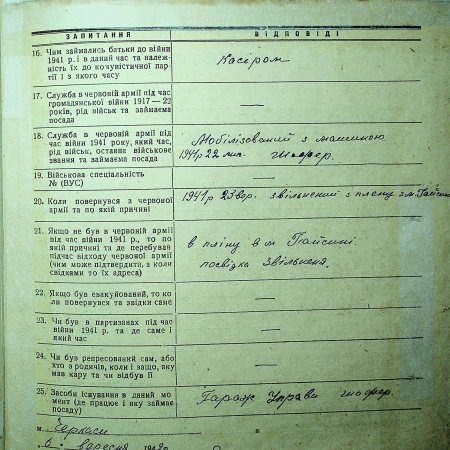 ЗАПИТАННЯ ВІДПОВІДІ
16. Чим займались батьки до війни
1941 р. і в даний час та належ-
ність їх до комуністичної пар-
тії і з якого часу
Касіром
17. Служба в червоній армії під час
громадянської війни 1917—22
років, рід військ та займаєма
посада
—
18. Служба в червоній армії під
час війни 1941 року, який час,
рід військ, останнє військове
звання та займаєма посада
Мобілізований з машиною
1941р 22 лип. шофер.
19. Військова спеціальність
№ (ВУС)
—
20. Коли повернувся з червоної
армії та по якій причині
1941р 23 вер. звільнений з плену з м. Гайсина
21. Якщо не був в червоній армії
під час війни 1941 р., то по
якій причині та де перебував
підчас відходу червоної армії
(чим може підтвердити, а коли
свідками то їх адреса)
в пліну в м Гайсині.
посвідка звільнена.
22. Якщо був евакуйований, то ко
ли повернувся та звідки саме
—
23. Чи був в партизанах під час
війни 1941 р. та де саме і
який час
—
24. Чи був репресований сам, або
хто з родичів, коли і защо, яку
мав кару та чи відбув її
—
25. Засоби існування в даний мо
мент (де працює і яку займає
посаду)
Гараж Управи шофер.
м. Черкаси
6. вересня 1942р